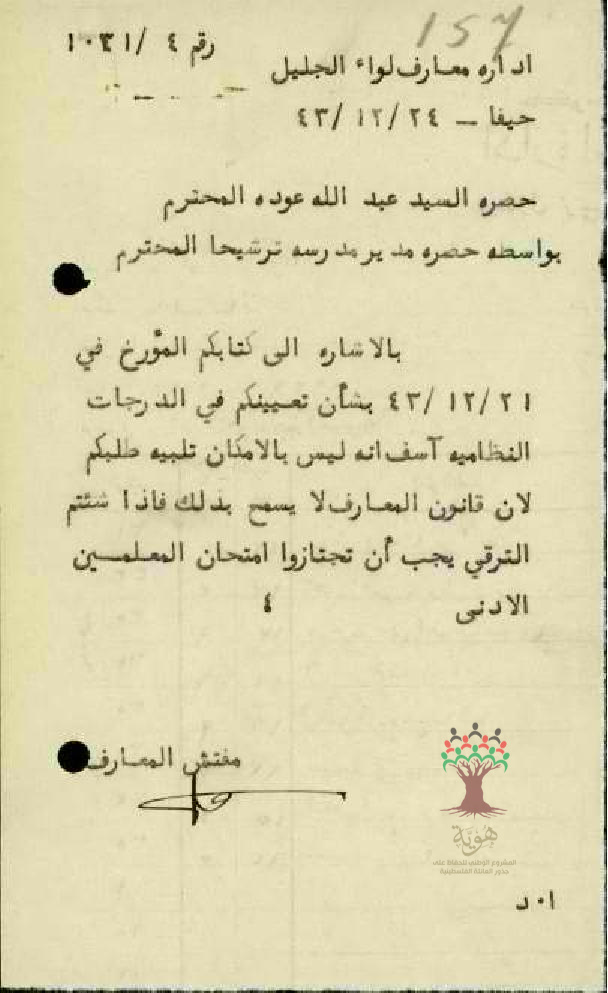 157
رقم ٤ /١٠٣١
اداره معارف لواء الجليل
حيفا – ٢٤ /١٢ /٤٣
حضره السيد عبد الله عوده المحترم
بواسطه حضره مدير مدرسه ترشيحا المحترم
بالاشاره الى كتابكم المؤرخ في
٢١ /١٢ /٤٣ بشأن تعيينكم في الدرجات
النظاميه آسف انه ليس بالامكان تلبيه طلبكم
لان قانون المعارف لا يسمح بذلك فاذا شئتم
الترقي يجب أن تجتازوا امتحان المعلمين
الادنى ٤
مفتش المعارف
هوية
المشروع الوطني للحفاظ على
جذور العائلة الفلسطينية
ا٠د